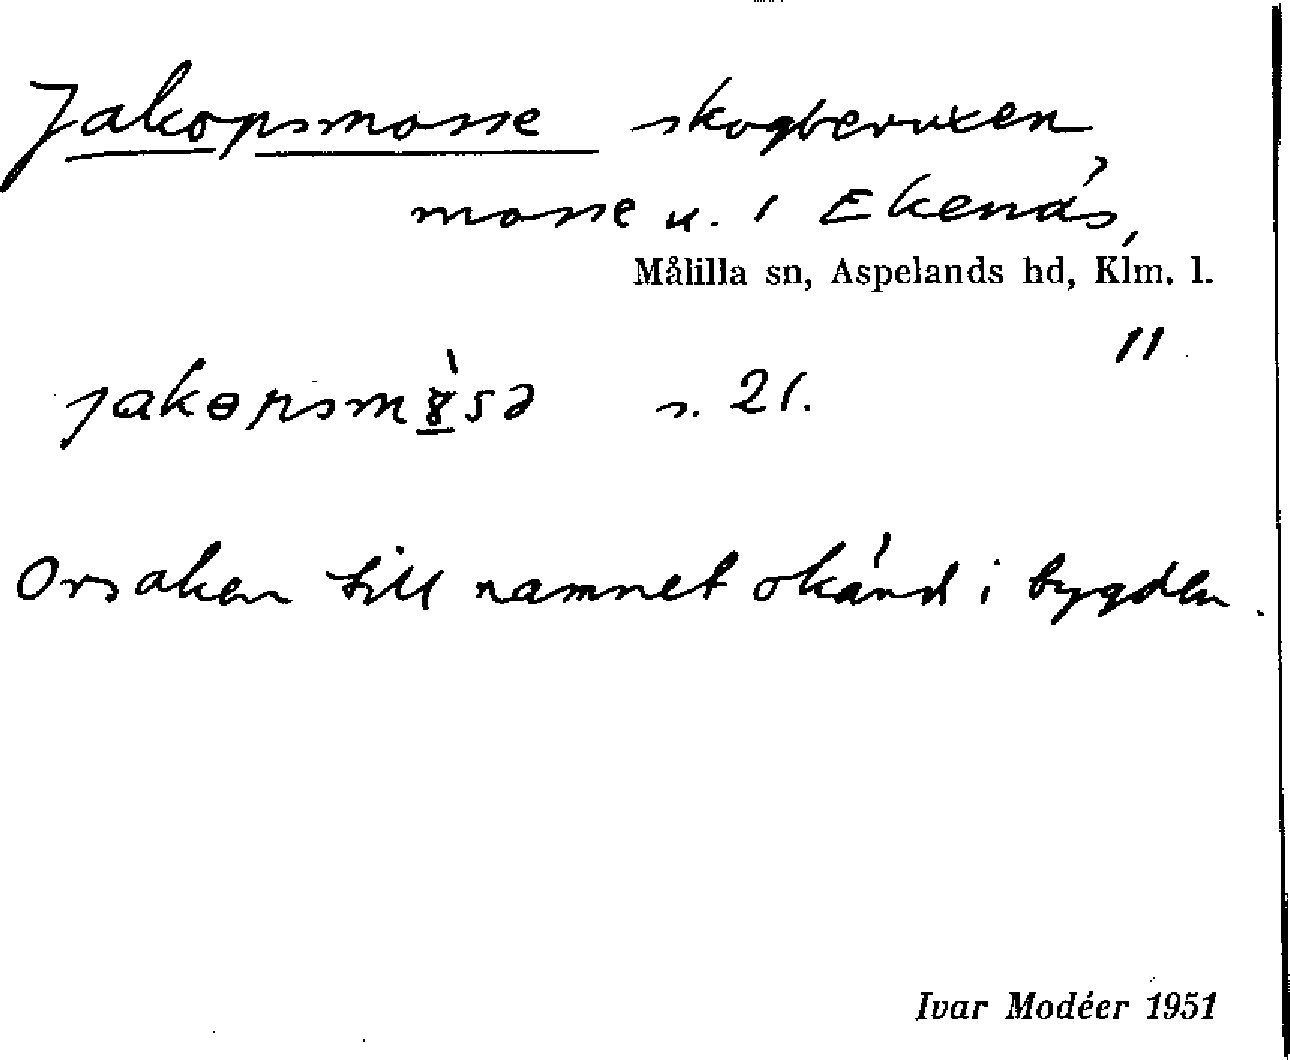 Jakopsmosse skogbevuxen
mosse u. 1 Ekenäs,
Målilla sn, Aspelands hd, Klm. l.
11
s. 21.
Orsaken till namnet okänd i bygden.
Ivar Modéer 1951